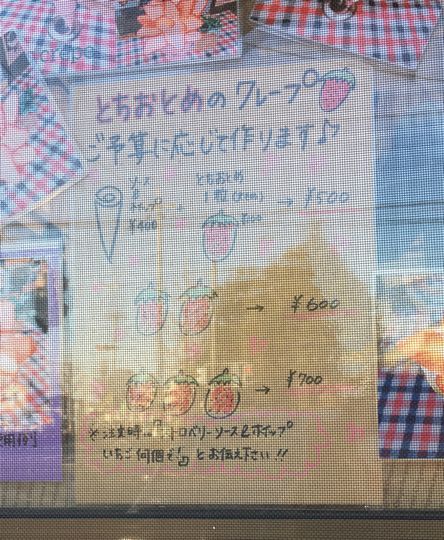 crepe
とちおとめのクレープ
ご予算に応じて作ります♪
ソース
&
ホイップ
¥400
+
とちおとめ
1粒(大きめ)
¥100
→ ¥500
→ ¥600
→ ¥700
※注文時に「ストロベリーソース&ホイップ
いちご何個で!」とお伝え下さい!!
用例